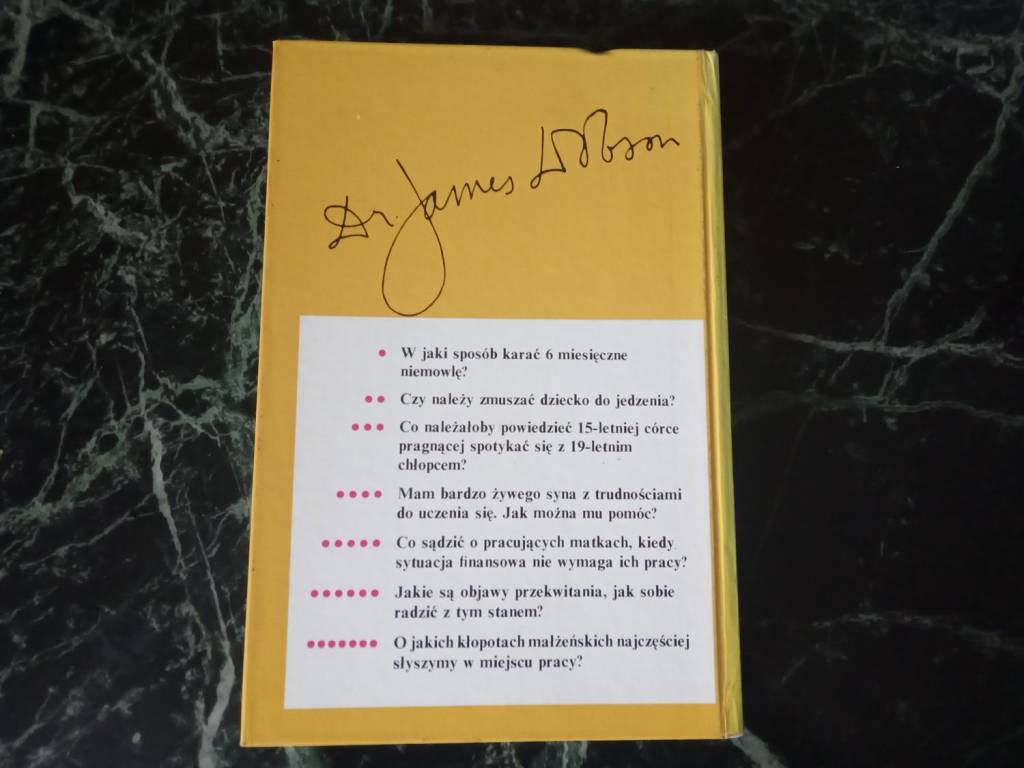 Dr. James Dobson
• W jaki sposób karać 6 miesięczne
niemowlę?
•• Czy należy zmuszać dziecko do jedzenia?
••• Co należałoby powiedzieć 15-letniej córce
pragnącej spotykać się z 19-letnim
chłopcem?
•••• Mam bardzo żywego syna z trudnościami
do uczenia się. Jak można mu pomóc?
••••• Co sądzić o pracujących matkach, kiedy
sytuacja finansowa nie wymaga ich pracy?
•••••• Jakie są objawy przekwitania, jak sobie
radzić z tym stanem?
••••••• O jakich kłopotach małżeńskich najczęściej
słyszymy w miejscu pracy?